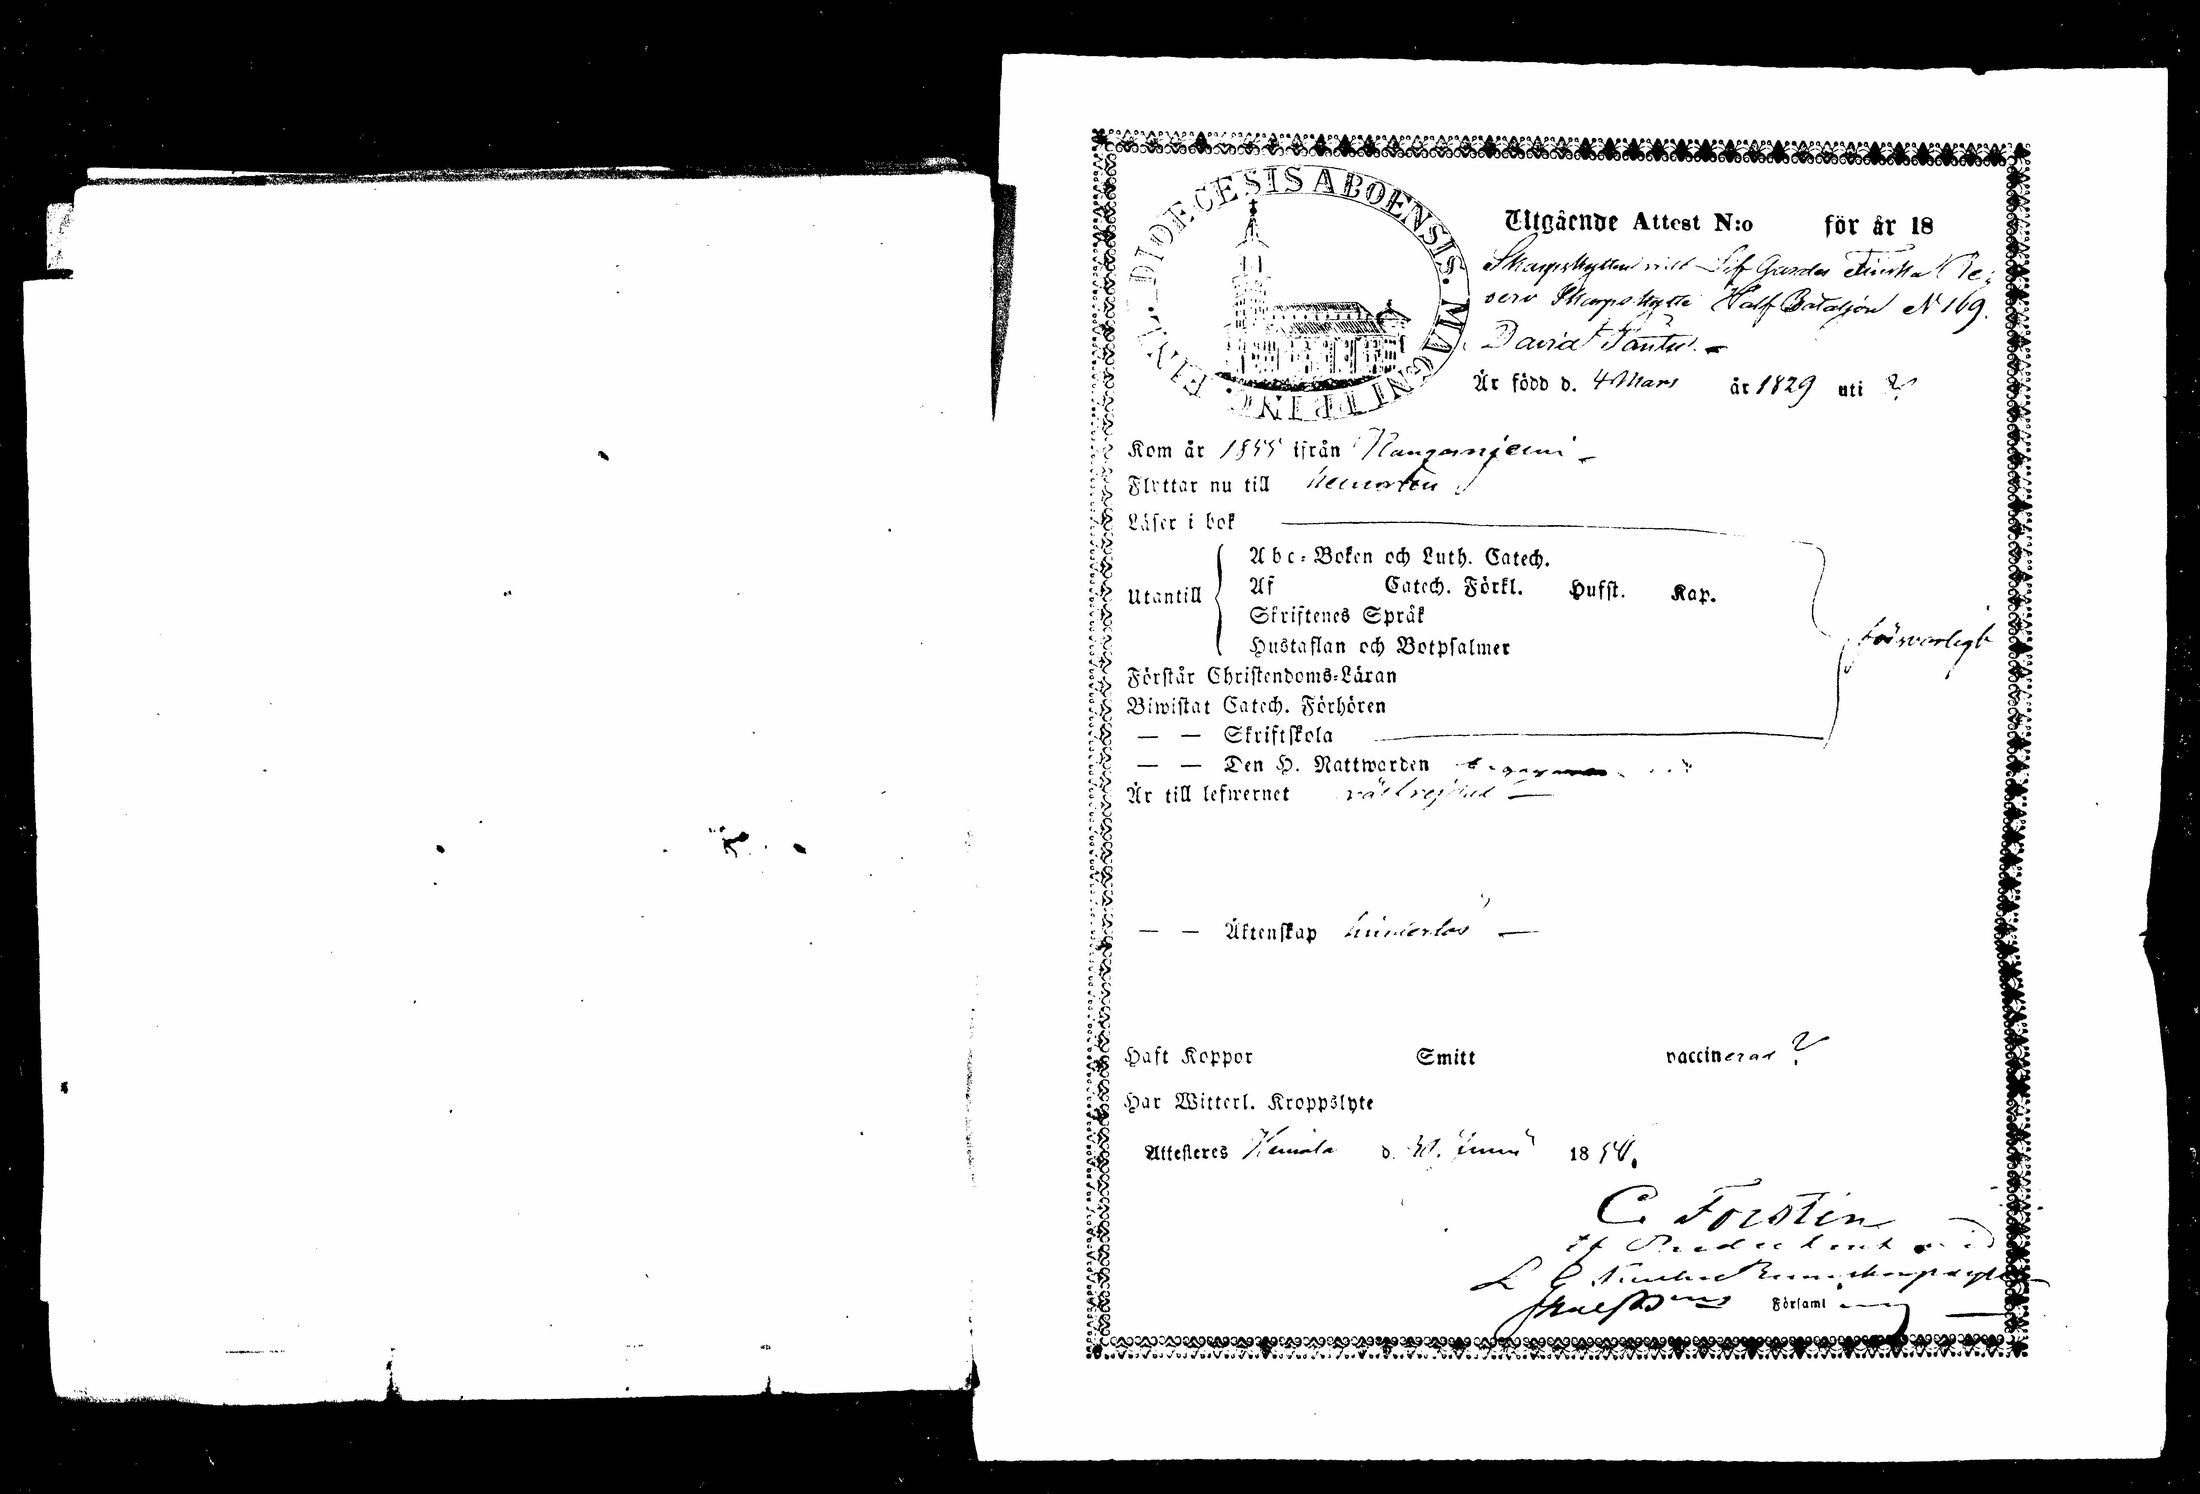 DIOECESIS ABOENSIS. MAGNI PRINC. FINL.
Utgående Attest N:o för år 18
Skarpskytten vid Lif Gardes Finska Re-
serv Skarpskytte Half Bataljon N 169.
David
Är född d. 4 Mars år 1829 uti ?
Kom år 1855 ifrån Kangasniemi
Flyttar nu till hemorten
Läser i bok
Utantill
Abc-Boken och Luth. Catech.
Af Catech. Förkl. Hufst. Kap.
Skriftenes Språk
Hustaflan och Botpsalmer
försvarligt
Förstår Christendoms-Läran
Biwistat Catech. Förhören
— — Skriftskola
— — Den H. Nattwarden
Är till lefwernet välfrejdad
— — Äktenskap hinderlös
Haft Koppor Smitt vaccinerad ?
Har Witterl. Kroppslyte
Attesteres Heinola d. Junii 18
C Forstén
tf Predikant vid
L G
Församl